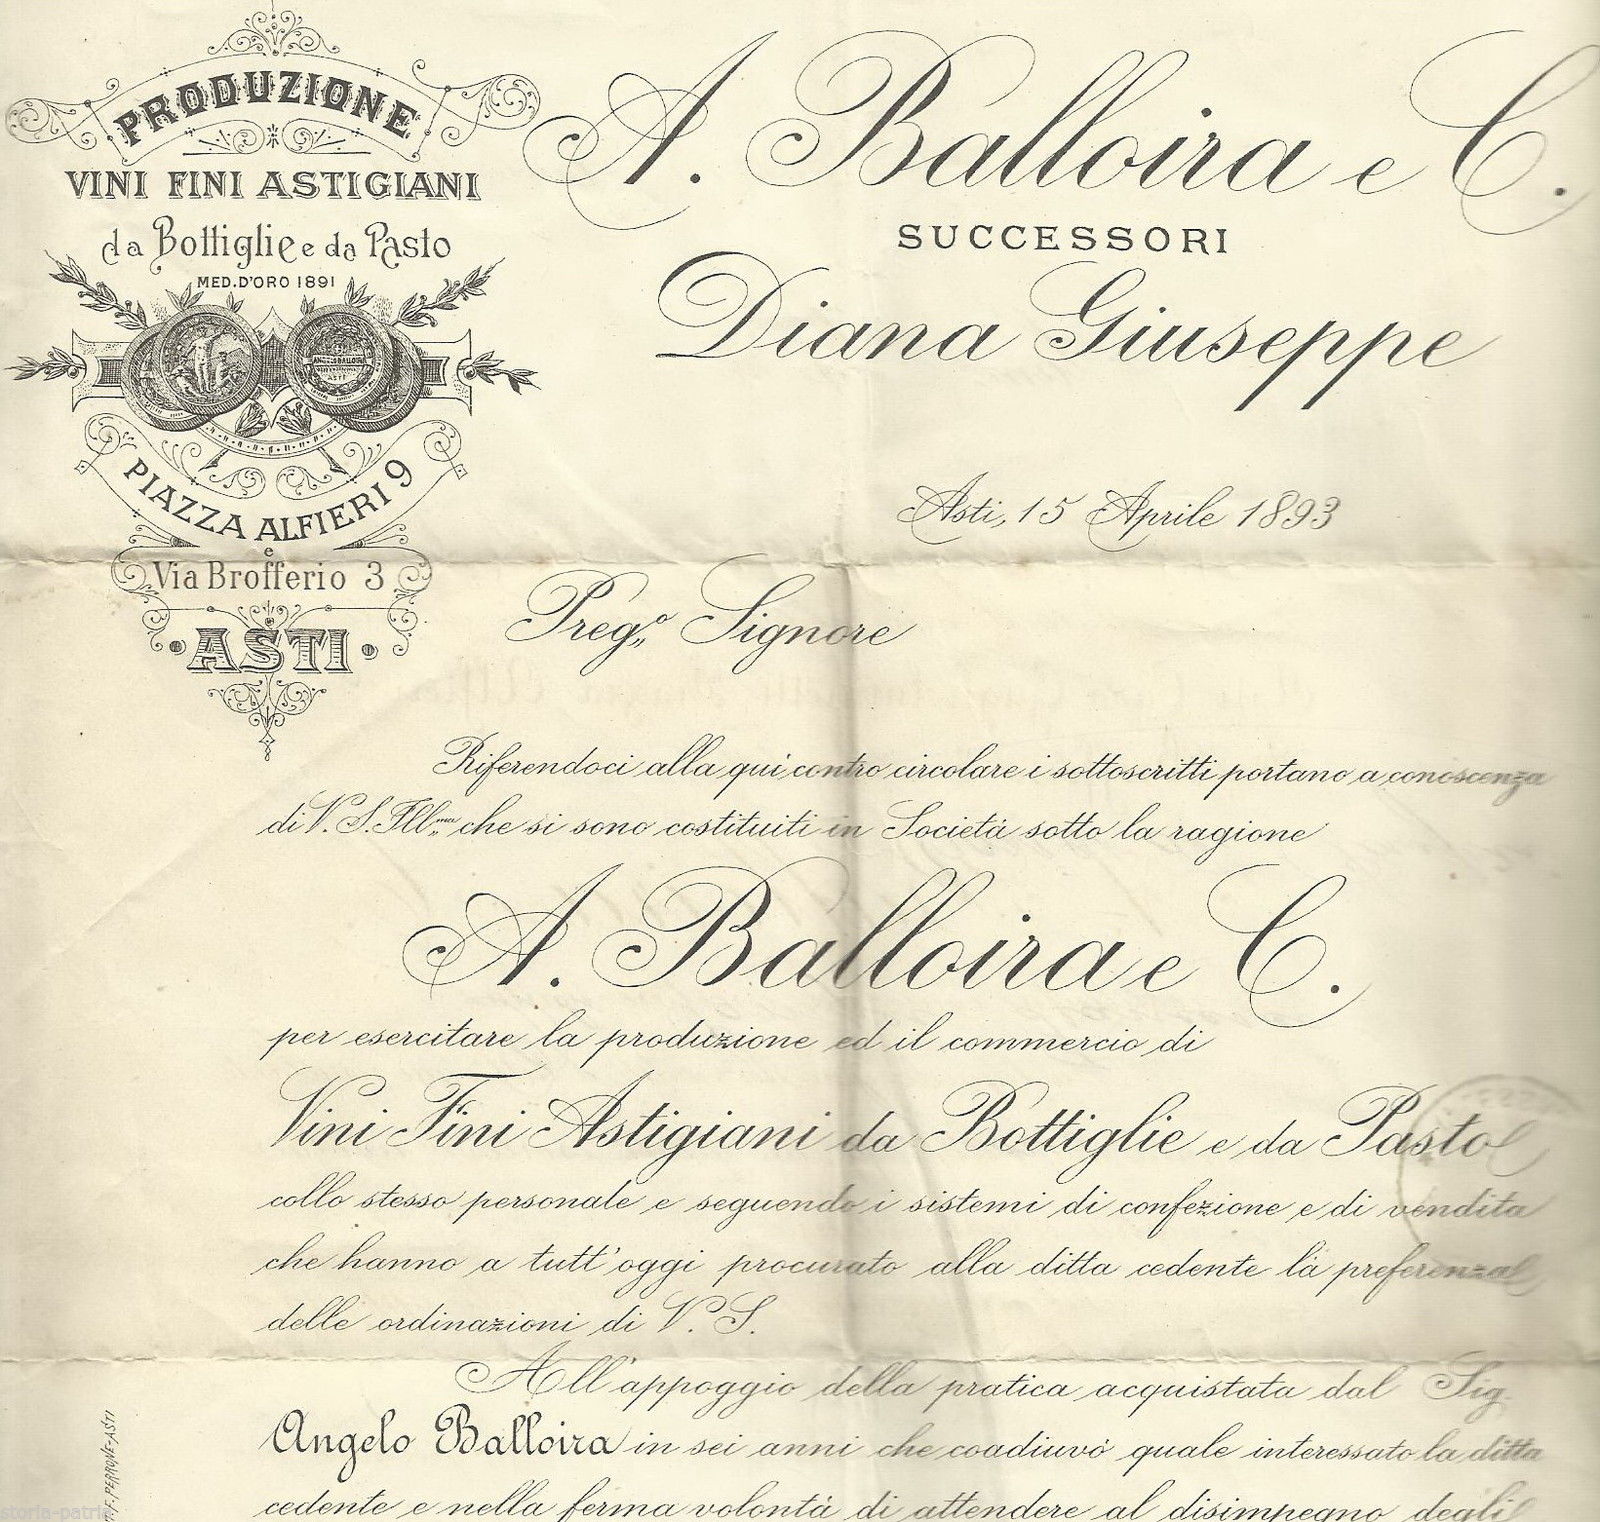 PRODUZIONE
VINI FINI ASTIGIANI
da Bottiglie e da Pasto
MED. D'ORO 1891
PIAZZA ALFIERI 9
e
Via Brofferio 3
ASTI
A. Balloira e C.
SUCCESSORI
Diana Giuseppe
Asti, 15 Aprile 1893
Preg.o Signore
Riferendoci alla qui contro circolare i sottoscritti portano a conoscenza
di V. S. Ill.ma che si sono costituiti in Società sotto la ragione
A. Balloira e C.
per esercitare la produzione ed il commercio di
Vini Fini Astigiani da Bottiglie e da Pasto
collo stesso personale e seguendo i sistemi di confezione e di vendita
che hanno a tutt'oggi procurato alla ditta cedente la preferenza
delle ordinazioni di V. S.
All'appoggio della pratica acquistata dal Sig.
Angelo Balloira in sei anni che coadiuvò quale interessato la ditta
cedente e nella ferma volontà di attendere al disimpegno degli
F. PERRONE-ASTI
storia-patria